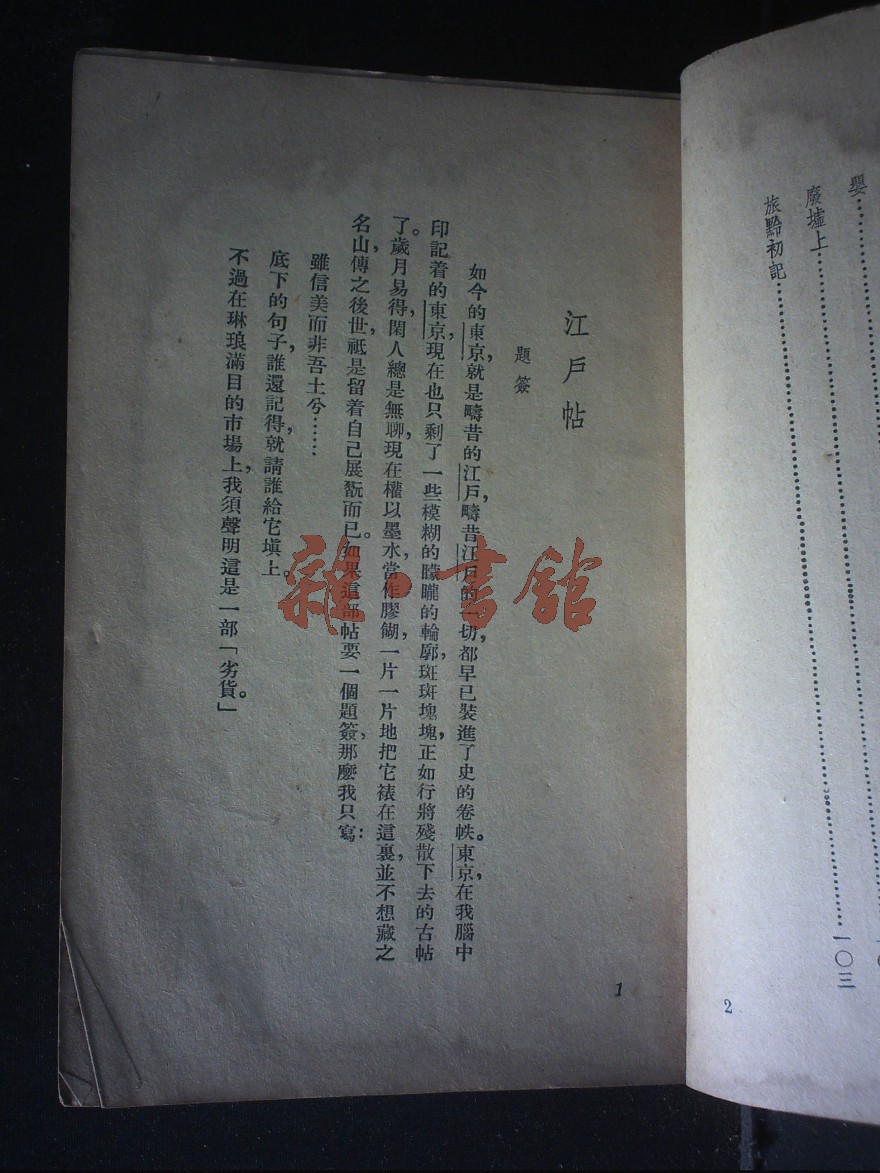 嬰……
廢墟上……
旅黔初記……一〇三
2
江戶帖
題簽
如今的東京，就是疇昔的江戶，疇昔江戶的一切，都早已裝進了史的卷帙。東京，在我腦中
印記着的東京，現在也只剩了一些模糊的朦朧的輪廓，斑斑塊塊，正如行將殘散下去的古帖
了。歲月易得，閑人總是無聊，現在權以墨水，當作膠餬，一片一片地把它裱在這裏，並不想藏之
名山，傳之後世，祗是留着自己展翫而已。如果這部帖要一個題簽，那麼我只寫：
雖信美而非吾土兮……
底下的句子，誰還記得，就請誰給它塡上。
不過在琳琅滿目的市場上，我須聲明這是一部「劣貨。」
1
雜·書館